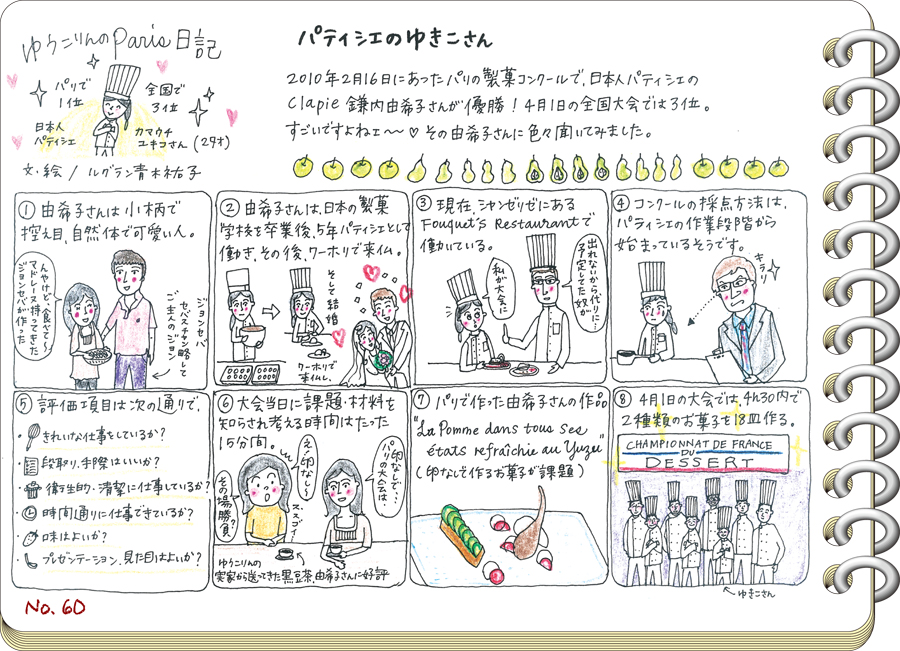 ゆうこりんのParis日記
パリで
1位
全国で
3位
日本人
パティシエ
カマウチ
ユキコさん(29才)
文・絵/ルグラン青木祐子
パティシエのゆきこさん
2010年2月16日にあったパリの製菓コンクールで、日本人パティシエの
Clapie 鎌内由希子さんが優勝!4月1日の全国大会では3位。
すごいですよねェ〜〜♡その由希子さんに色々聞いてみました。
① 由希子さんは小柄で
控え目、自然体で可愛い人。
んやけど、食べて〜
マドレーヌ持ってきた
ジョンセバが作った
ジョンセバ
セバスチャン略して
ご主人のジョン
② 由希子さんは、日本の製菓
学校を卒業後、5年パティシエとして
働き、その後、ワーホリで来仏。
そして結婚
ワーホリで
来仏し、
③ 現在、シャンゼリゼにある
Fouquet's Restaurantで
働いている。
出れないから、代りに…
予定してた奴が
私が大会に
④ コンクールの採点方法は、
パティシエの作業段階から
始まっているそうです。
キラリ
⑤ 評価項目は次の通りで、
・きれいな仕事をしているか?
・段取り、手際はいいか?
・衛生的・清潔に仕事しているか?
・時間通りに仕事できているか?
・味はよいか?
・プレゼンテーション、見た目はよいか?
⑥ 大会当日に課題・材料を
知らされ考える時間はたった
15分間。
え、卵なし〜
スッゴイ…
その場勝負?
卵なしで…
パリの大会は
ゆうこりんの
実家から送ってきた黒豆茶、由希子さんに好評
⑦ パリで作った由希子さんの作品
"La Pomme dans tous ses
états refraîchie au Yuzu"
(卵なしで作るお菓が課題)
⑧ 4月1日の大会では、4h30内で
2種類のお菓子を18皿作る。
CHAMPIONNAT DE FRANCE
DU
DESSERT
ゆきこさん
No. 60